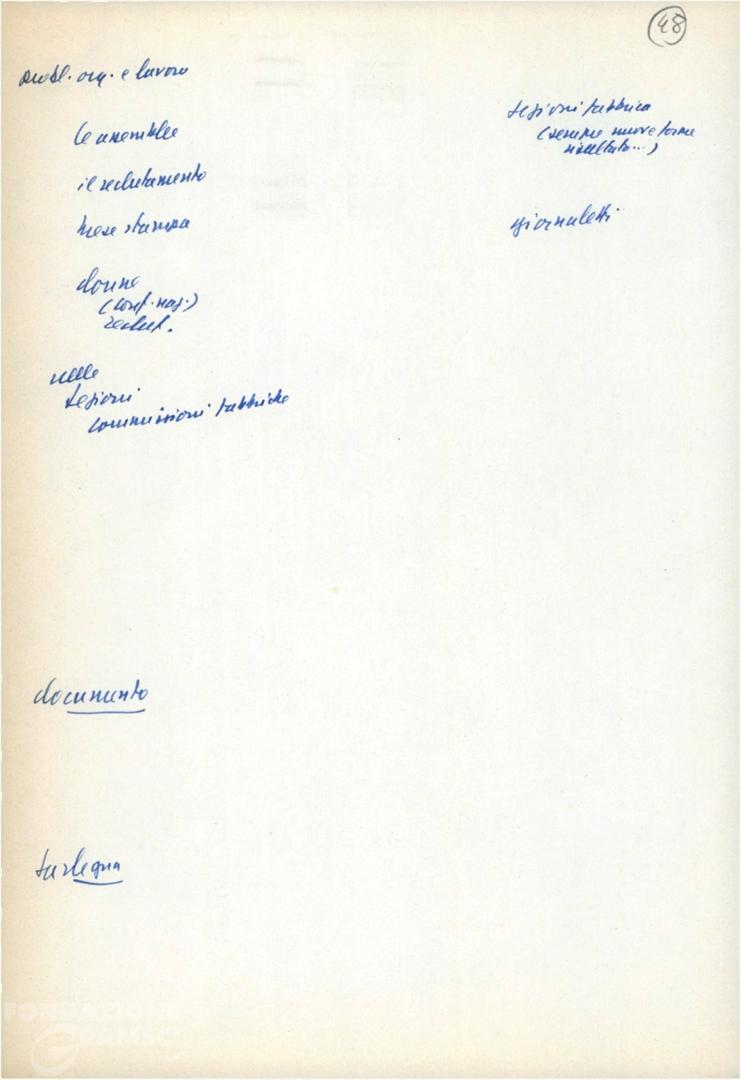 48
probl. org. e lavoro
le assemblee
il reclutamento
mese stampa
donne
(conf. naz.)
reclut.
nelle
sezioni
commissioni fabbriche
sezioni fabbrica
nuove forme
risultato...)
giornaletti
documento
Sardegna
FONDAZIONE
GRAMSCI